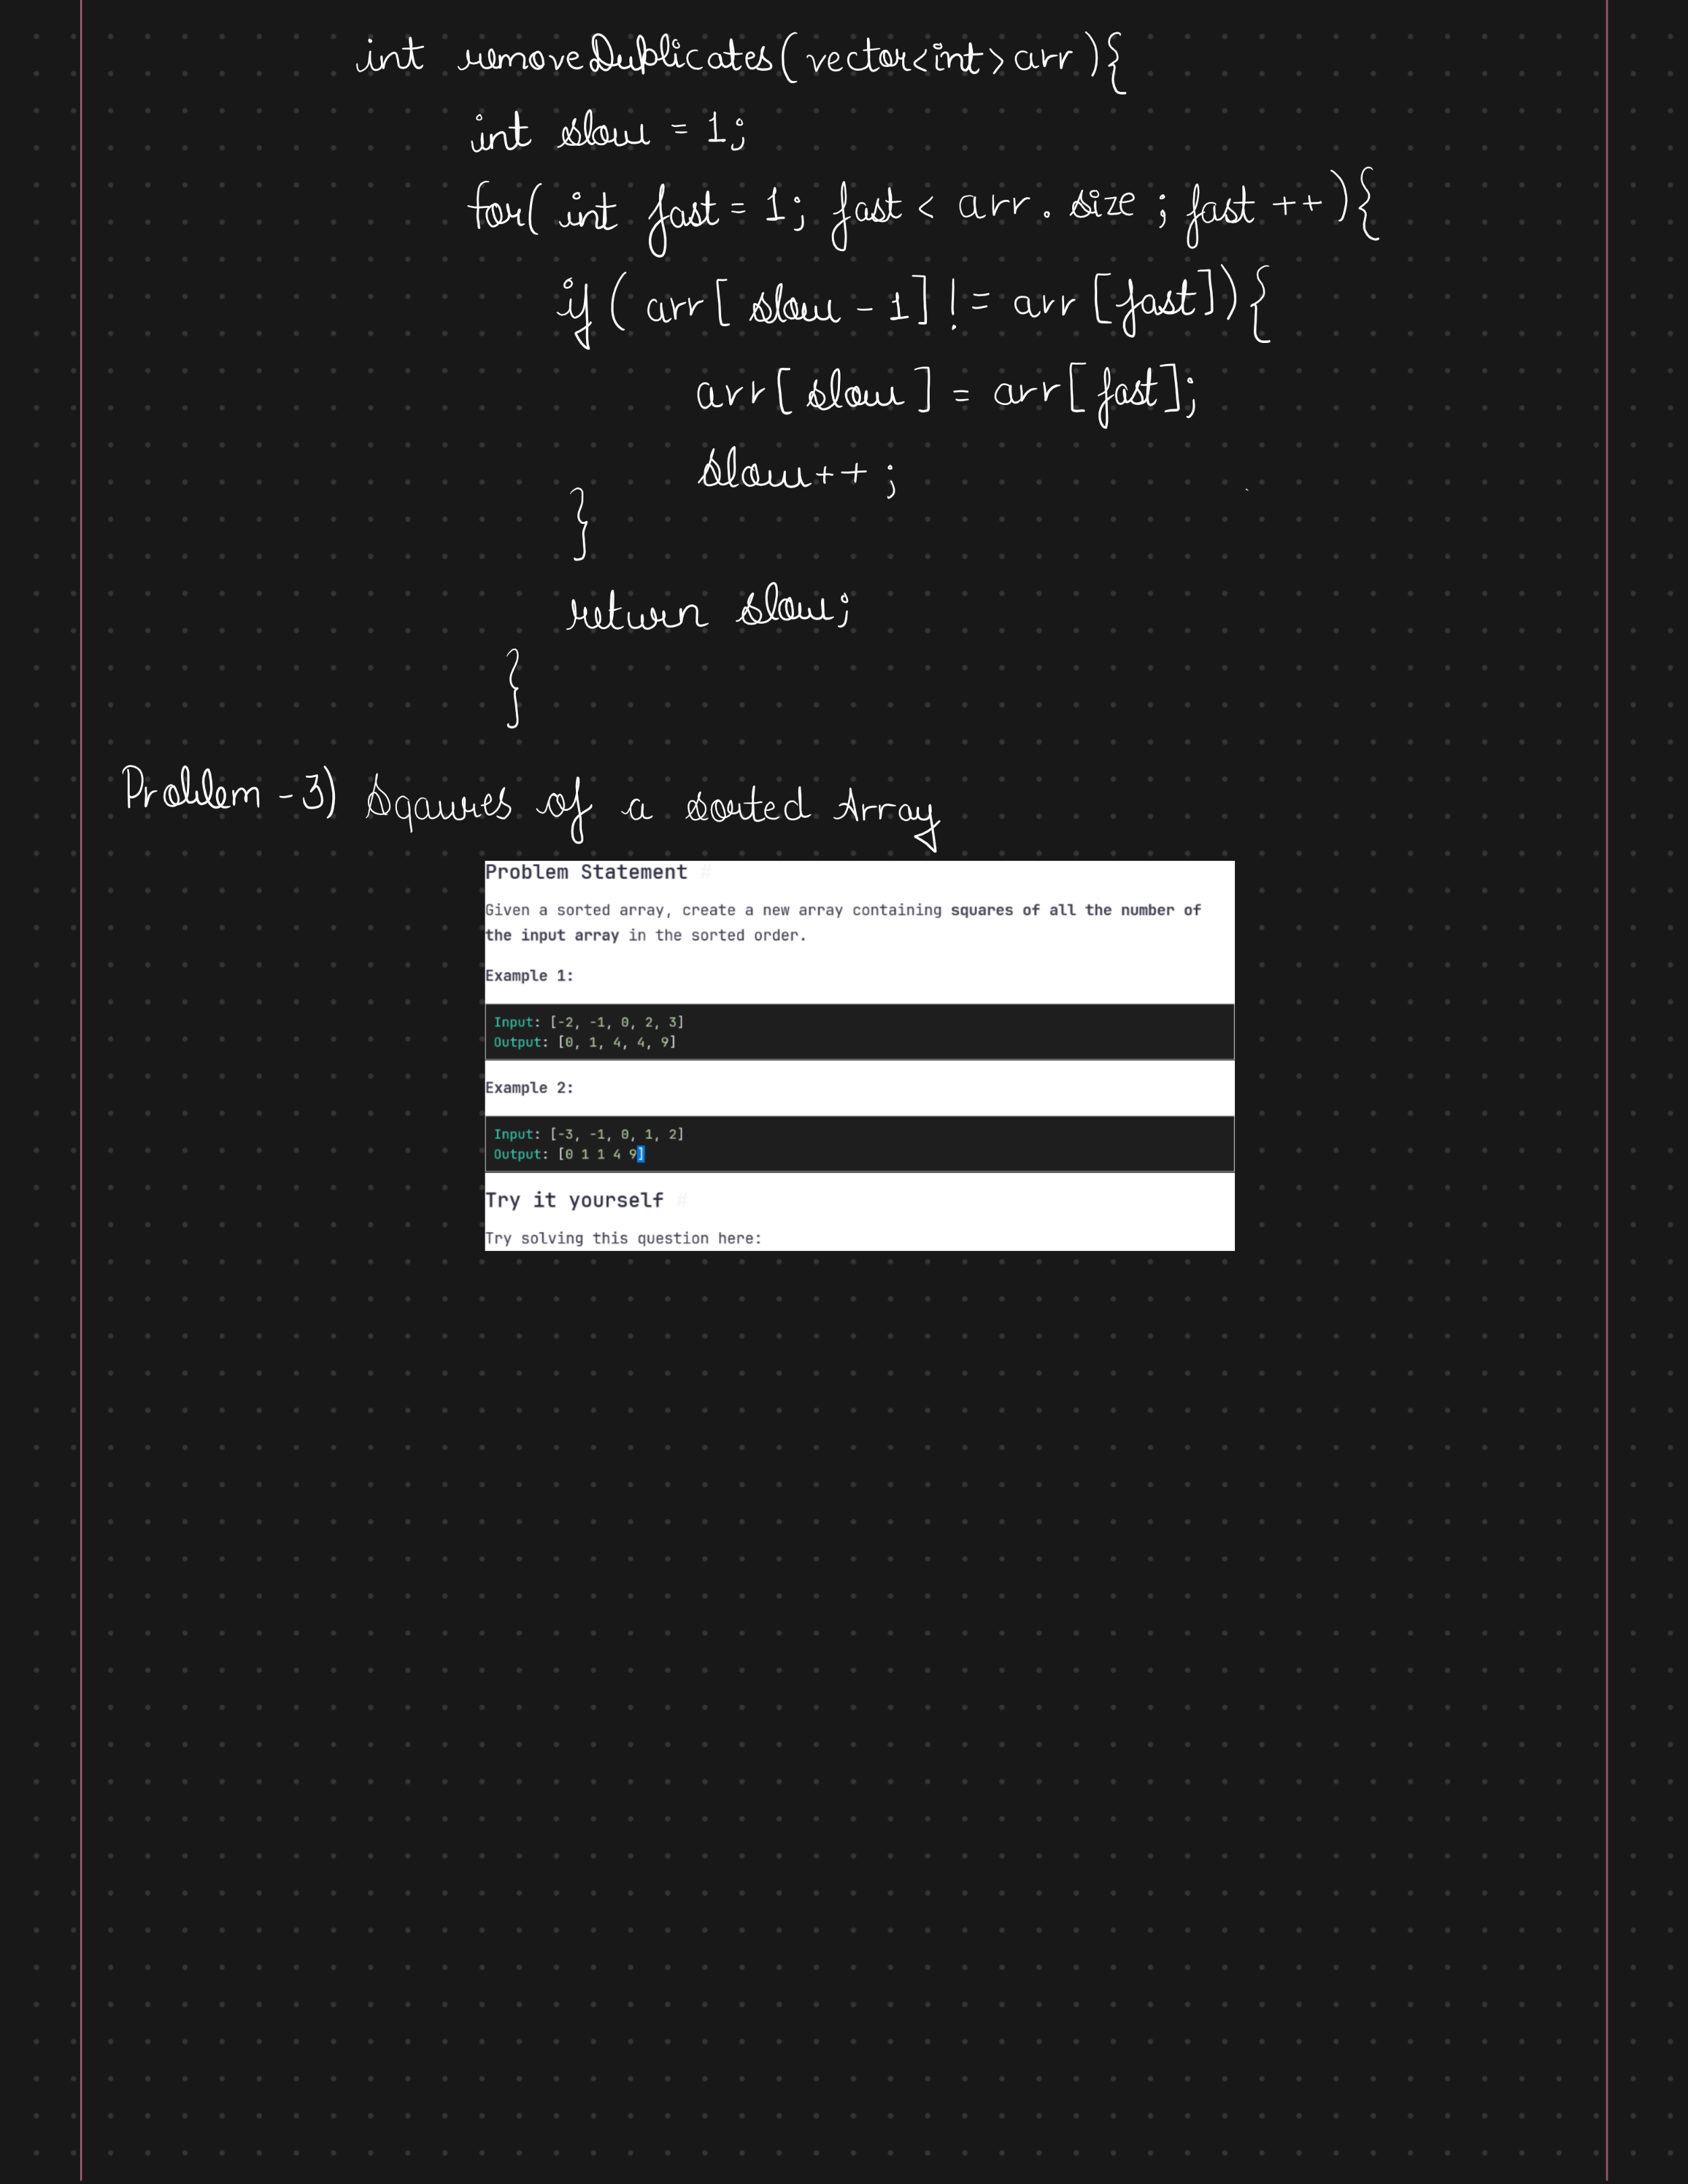 int removeDuplicates(vector<int>arr){
int slow = 1;
for( int fast = 1; fast < arr. size ; fast ++){
if ( arr[ slow - 1] != arr [fast]){
arr[ slow ] = arr[ fast];
slow++ ;
}
return slow;
}
Problem -3) Sqaures of a sorted Array
Problem Statement #
Given a sorted array, create a new array containing squares of all the number of
the input array in the sorted order.
Example 1:
Input: [-2, -1, 0, 2, 3]
Output: [0, 1, 4, 4, 9]
Example 2:
Input: [-3, -1, 0, 1, 2]
Output: [0 1 1 4 9]
Try it yourself #
Try solving this question here: